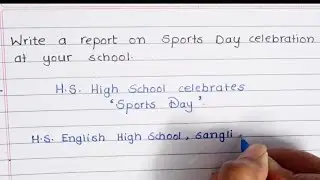 Write a report on Sports Day celebration
at your school.
H.S. High School celebrates
'Sports Day'.
H.S. English High School, Sangli.